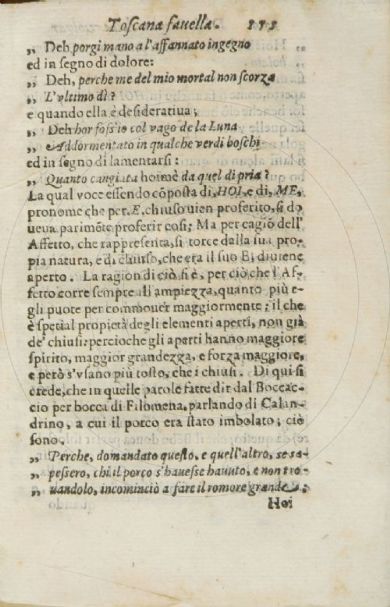 Toscana fauella. 555
„ Deh porgi mano a l'affannato ingegno
ed in segno di dolore:
„ Deh, perche me del mio mortal non scorza
„ L'vltimo dì?
e quando ella è desideratiua;
„ Deh hor foss'io col vago de la Luna
„ Addormentato in qualche verdi boschi
ed in segno di lamentarsi:
„ Quanto cangiata hoimè da quel di pria?
La qual voce essendo cõposta di, HOI, e di, ME,
pronome che per, E, chiuso vien proferito, si do
ueua parimẽte proferir così; Ma per cagiõ dell'
Affetto, che rappresenta, si torce dalla sua pro-
pia natura, e di chiuso, che era il suo E, diuiene
aperto. La ragion di ciò si è, per ciò, che l'Af-
fetto corre sempre all'ampiezza, quanto più e-
gli puote per commouer maggiormente; il che
è spetial propietà degli elementi aperti, non già
de' chiusi; percioche gli aperti hanno maggiore
spirito, maggior grandezza, e forza maggiore,
e però s'vsano più tosto, che i chiusi. Di qui si
crede, che in quelle parole fatte dir dal Boccac-
cio per bocca di Filomena, parlando di Calan-
drino, a cui il porco era stato imbolato; ciò
sono.
„ Perche, domandato questo, e quell'altro, se sa-
„ pessero, chi il porco s'hauesse hauuto, e non tro-
„ uandolo, incominciò a fare il romore grande:
Hoi